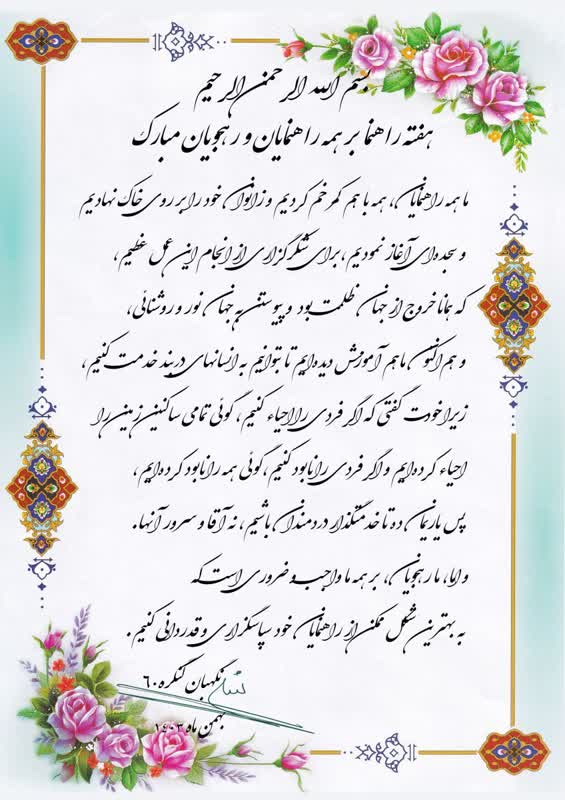 بسم الله الرحمن الرحیم
هفته راهنما بر همه راهنمایان و رهجویان مبارک
ما همه راهنمایان، همه با هم کمر خم کردیم و زانوان خود را بر روی خاک نهادیم
و سجده‌ای آغاز نمودیم، برای شکرگزاری از انجام این عمل عظیم،
که همانا خروج از جهان ظلمت بود و پیوستن به جهان نور و روشنائی،
و هم اکنون ما هم آموزش دیده‌ایم تا بتوانیم به انسانهای در بند خدمت کنیم،
زیرا خودت گفتی که اگر فردی را احیاء کنیم، گوئی تمامی ساکنین زمین را
احیاء کرده‌ایم و اگر فردی را نابود کنیم، گوئی همه را نابود کرده‌ایم،
پس یاریمان ده تا خدمتگذار دردمندان باشیم، نه آقا و سرور آنها.
و اما، ما رهجویان، بر همه ما واجب و ضروری است که
به بهترین شکل ممکن از راهنمایان خود سپاسگزاری و قدردانی کنیم.
نگهبان کنگره ۶۰
بهمن ماه ۱۴۰۳